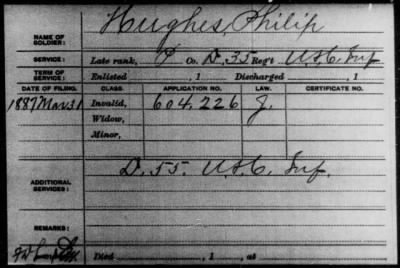 Hughes, Philip
NAME OF SOLDIER:
SERVICE: Late rank, P Co. D, 35 Reg't U.S.C. Inf
TERM OF SERVICE: Enlisted , 1 Discharged , 1
DATE OF FILING. CLASS. APPLICATION NO. LAW. CERTIFICATE NO.
1887 Mar 31 Invalid, 604,226 J.
Widow,
Minor,
D. 55. U.S.C. Inf.
ADDITIONAL SERVICES:
REMARKS:
Died , 1 , at